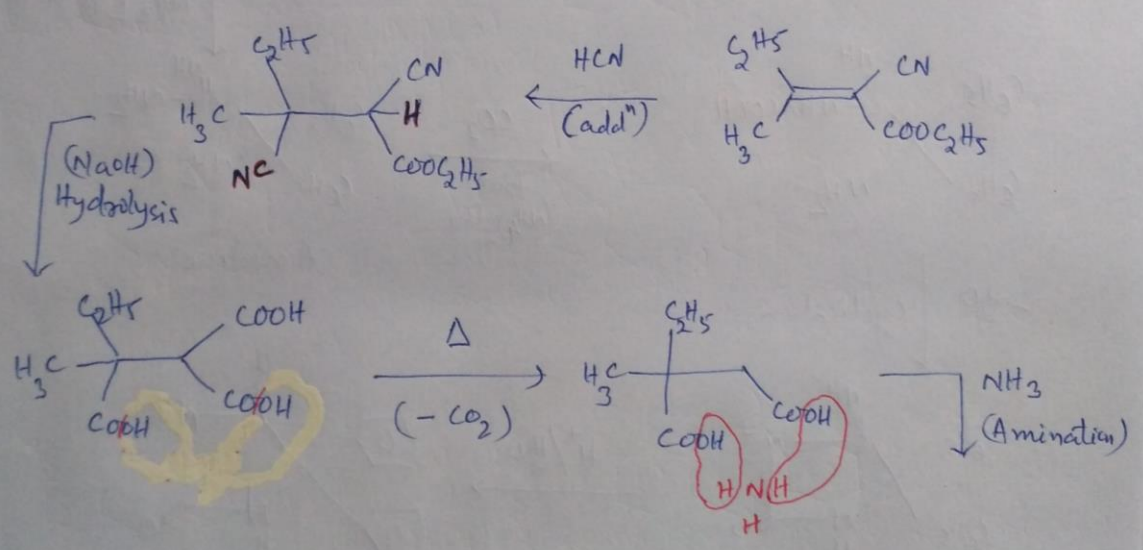 C2H5
H3C
NC
CN
H
COOC2H5
HCN
(addⁿ)
C2H5
H3C
CN
COOC2H5
(NaOH)
Hydrolysis
C2H5
H3C
COOH
COOH
COOH
Δ
(- CO2)
C2H5
H3C
COOH
COOH
H N H
H
NH3
(Amination)